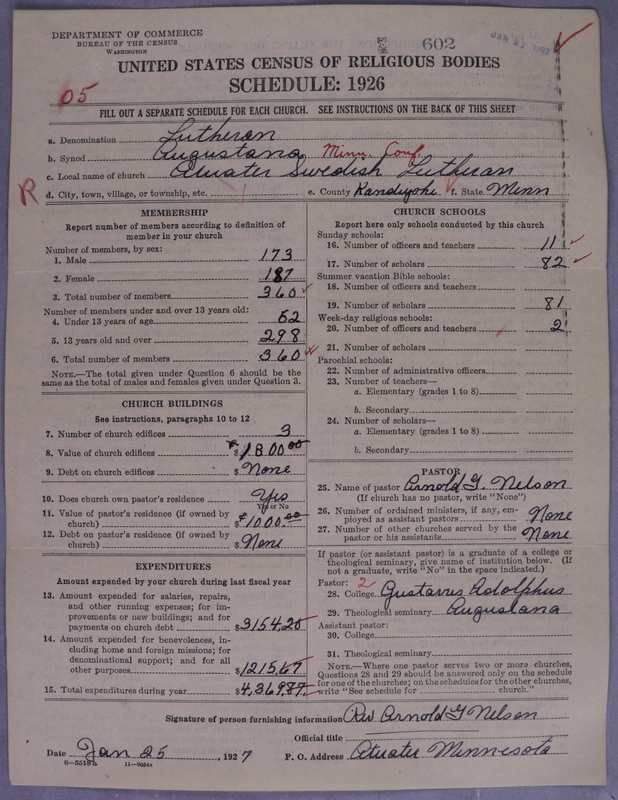 DEPARTMENT OF COMMERCE
BUREAU OF THE CENSUS
WASHINGTON
602
JAN 27 1927
UNITED STATES CENSUS OF RELIGIOUS BODIES
SCHEDULE: 1926
05
FILL OUT A SEPARATE SCHEDULE FOR EACH CHURCH. SEE INSTRUCTIONS ON THE BACK OF THIS SHEET
a. Denomination Lutheran
b. Synod Augustana Minn. Conf
c. Local name of church Atwater Swedish Lutheran
R d. City, town, village, or township, etc. e. County Kandiyohi f. State Minn
MEMBERSHIP
Report number of members according to definition of
member in your church
Number of members, by sex:
1. Male 173
2. Female 187
3. Total number of members 360
Number of members under and over 13 years old:
4. Under 13 years of age 62
5. 13 years old and over 298
6. Total number of members 360
NOTE.—The total given under Question 6 should be
same as the total of males and females given under Question 3.
CHURCH BUILDINGS
See instructions, paragraphs 10 to 12
7. Number of church edifices 3
8. Value of church edifices $ 1800000
9. Debt on church edifices $ None
10. Does church own pastor's residence Yes
Yes or No
11. Value of pastor's residence (if owned by
church) $ 1000.00
12. Debt on pastor's residence (if owned by
church) $ None
EXPENDITURES
Amount expended by your church during last fiscal year
13. Amount expended for salaries, repairs,
and other running expenses; for im-
provements or new buildings; and for
payments on church debt $ 3154.20
14. Amount expended for benevolences, in-
cluding home and foreign missions; for
denominational support; and for all
other purposes $ 1215.67
15. Total expenditures during year $ 4,369.87
CHURCH SCHOOLS
Report here only schools conducted by this church
Sunday schools:
16. Number of officers and teachers 11
17. Number of scholars 82
Summer vacation Bible schools:
18. Number of officers and teachers
19. Number of scholars 81
Week-day religious schools:
20. Number of officers and teachers 2
21. Number of scholars
Parochial schools:
22. Number of administrative officers
23. Number of teachers—
a. Elementary (grades 1 to 8)
b. Secondary
24. Number of scholars—
a. Elementary (grades 1 to 8)
b. Secondary
PASTOR
25. Name of pastor Arnold G. Nelson
(If church has no pastor, write "None")
26. Number of ordained ministers, if any, em-
ployed as assistant pastors None
27. Number of other churches served by the
pastor or his assistants None
If pastor (or assistant pastor) is a graduate of a college or
theological seminary, give name of institution below. (If
not a graduate, write "No" in the space indicated.)
Pastor: 2
28. College Gustavus Adolphus
29. Theological seminary Augustana
Assistant pastor:
30. College
31. Theological seminary
NOTE.—Where one pastor serves two or more churches,
Questions 28 and 29 should be answered only on the schedule
for one of the churches; on the schedules for the other churches,
write "See schedule for church."
Signature of person furnishing information Rev Arnold G Nelson
Official title
Date Jan 25, 1927 P. O. Address Atwater Minnesota
8-5518a 11-9054c